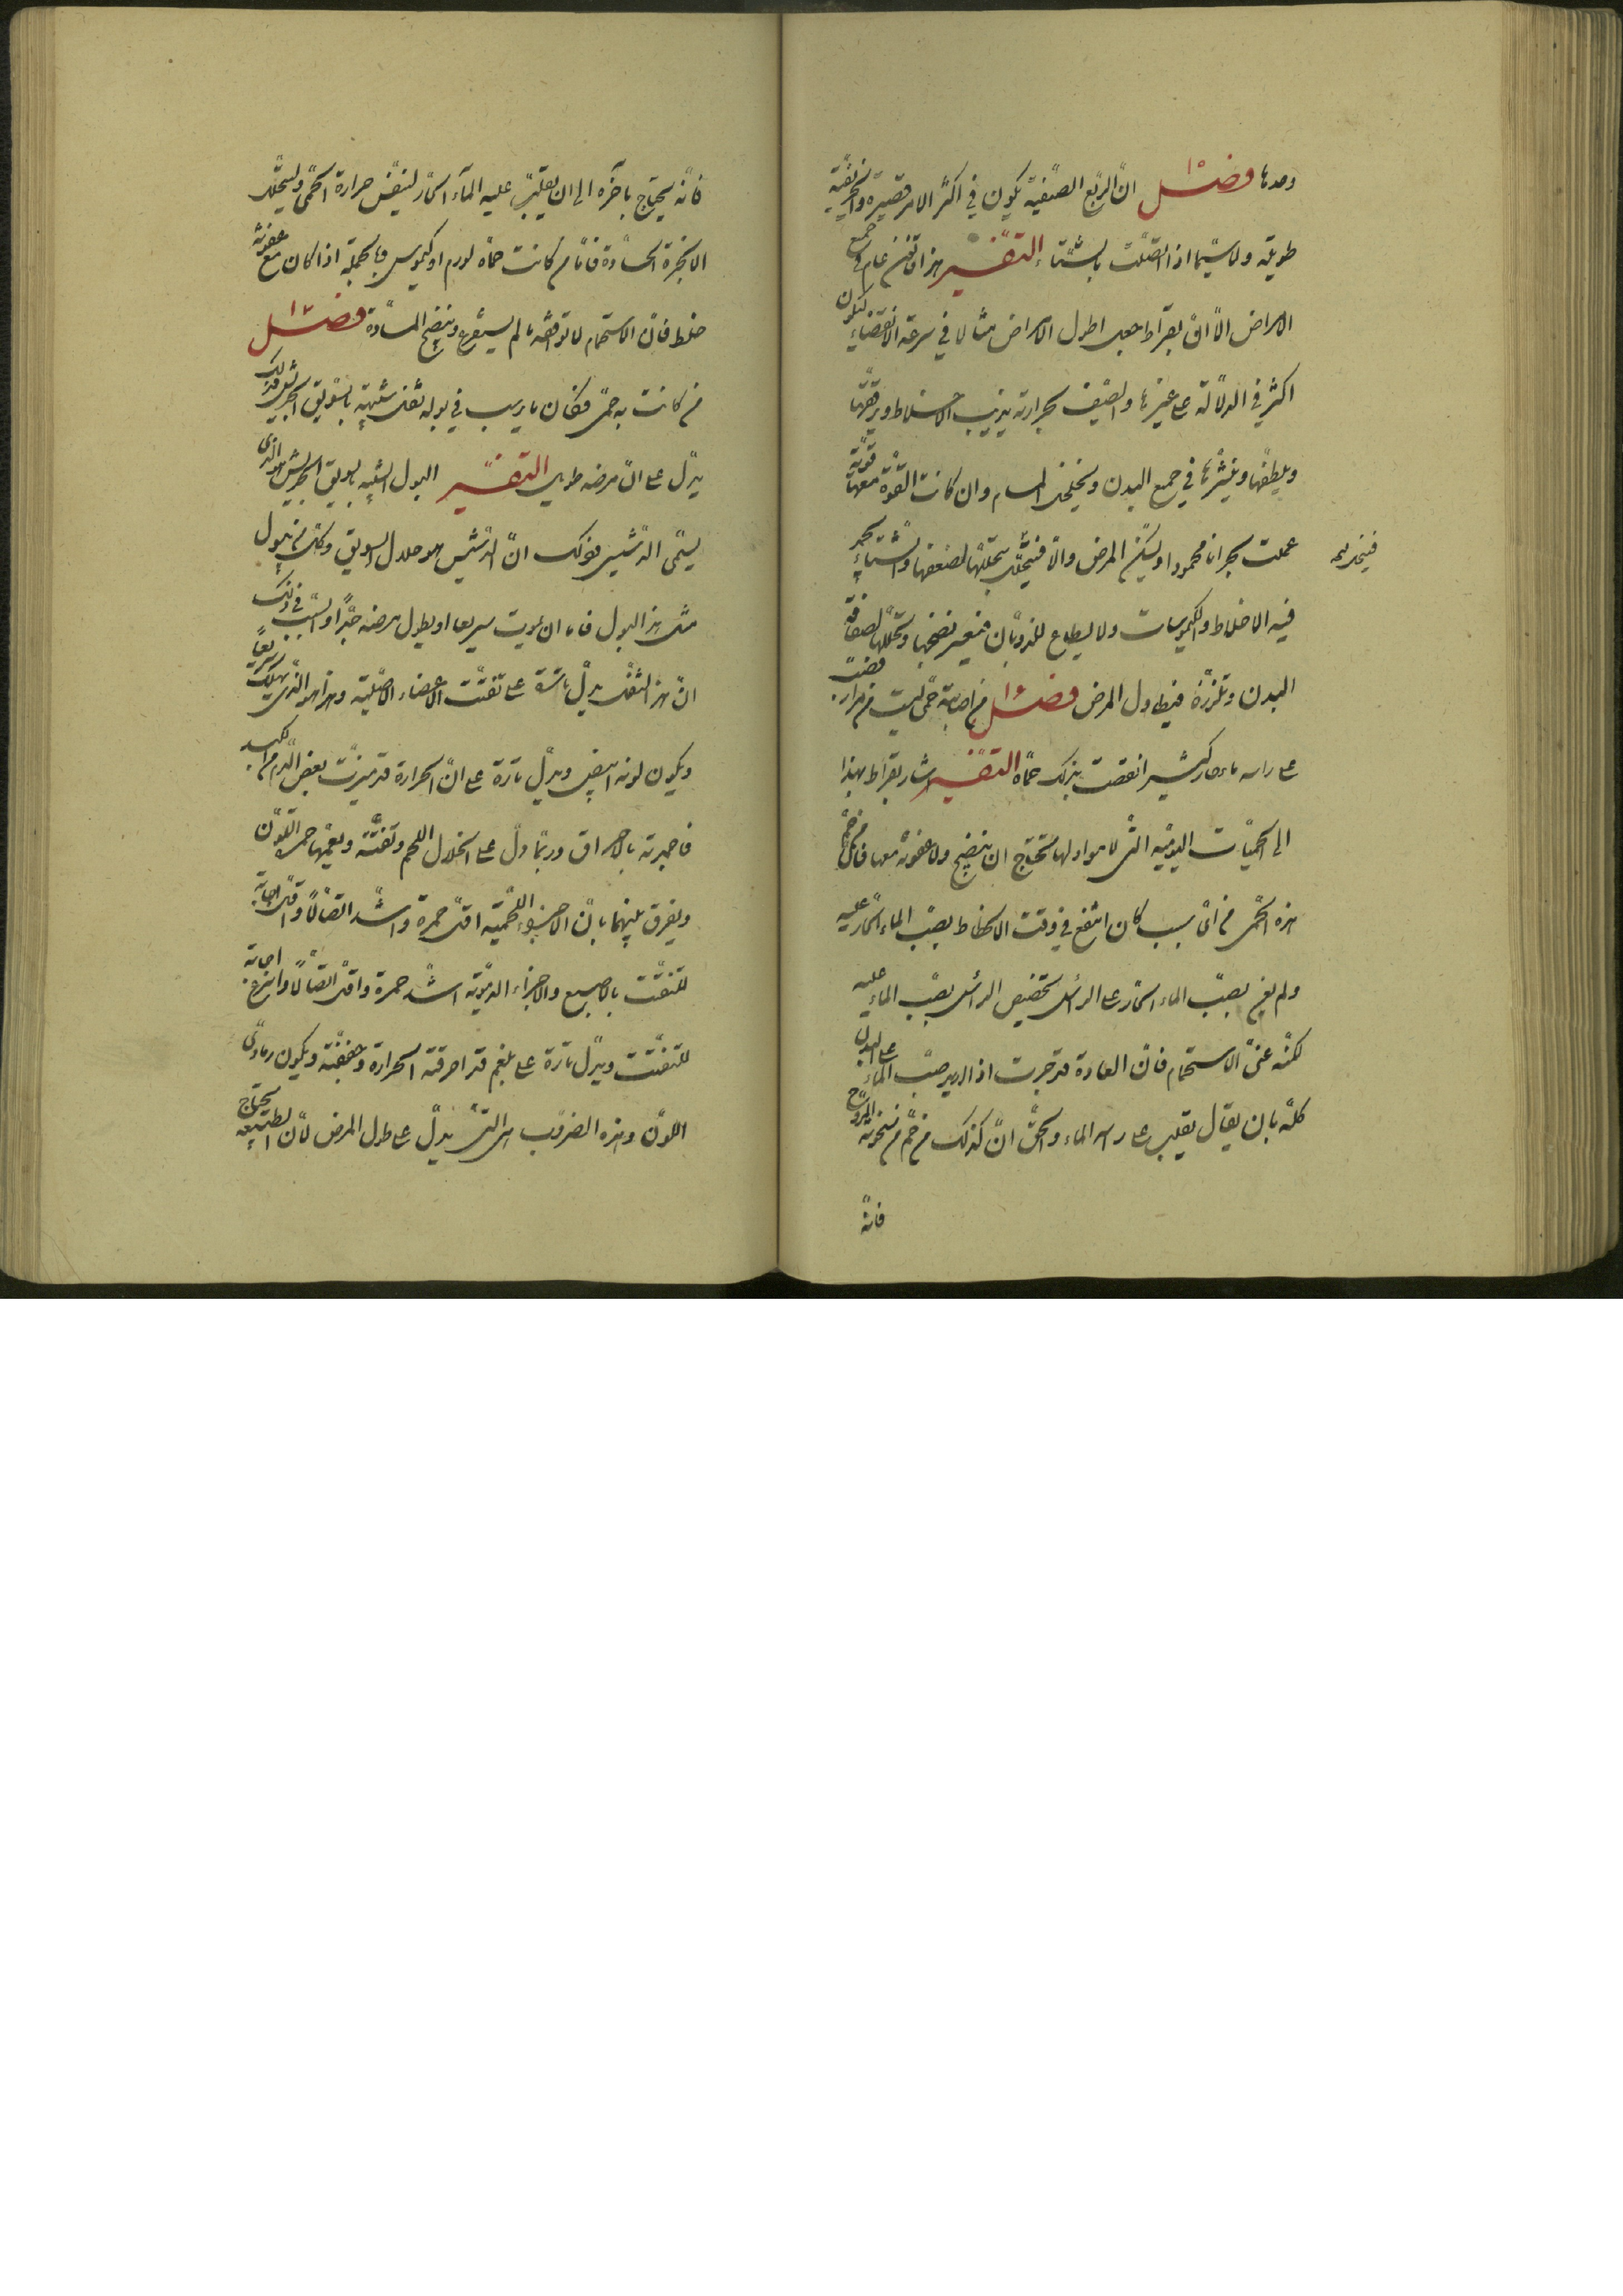 وحدها فصل ان الربع الصيفية يكون في اكثر الامر قصيرة والخريفية
طويلة ولا سيما اذا اتصلت بالشتاء التفسير هذا قانون عام في جميع
الامراض الا ان بقراط جعل اطول الامراض مثالا في سرعة الانقضاء ليكون
اكثر في الدلالة على غيرها والصيف بحرارته يذيب الاخلاط ويرققها
ويلطفها وينشرها في جميع البدن ويخلخل المسام وان كانت القوة معها قوية
عملت بحرانا محمودا وليسكن المرض والا فيتحلل بتحللها لضعفها والشتاء يجمد
فيه الاخلاط والكيموسات ولا يطاع للذوبان فيعسر نضجها وتحللها لصفاقة
البدن وتلززه فيطاول المرض فصل من اصابته حمى ليست من مرار فصب
على راسه ماء حار كثير انقضت بذلك حماه التفسير اشار بقراط بهذا
الى الحميات اليومية التي لا مواد لها تحتاج ان ينضج ولا عفونة معها فان من حم
هذه الحمى من اى سبب كان انتفع في وقت الانحطاط بصب الماء الحار عليه
ولم يعن بصب الماء الحار على الراس تخصيص الراس بصب الماء عليه
لكنه عنى الاستحمام فان العادة قد جرت اذا اريد صب الماء على البدن
كله بان يقال يقلب على راسه الماء والحق ان كذلك من حم من سخونة المزاج
فانه
فانه يحتاج باخره الى ان يقلب عليه الماء الحار لينفس حرارة الحمى وليتحلل
الابخرة الحادة فاما من كانت حماه لورم او كيموس وبالجملة اذا كان مع عفونة
خلط فان الاستحمام لا توافقه ما لم يستفرغ وينضج المادة فصل
من كانت به حمى فكان ما يرسب في بوله ثفل شبيه بالسويق الجريش فذلك
يدل على ان مرضه طويل التفسير البول الشبيه بالسويق الجريش هو الذى
يسمى الدشيش فذلك ان الدشيش هو جلال السويق وكل من يبول
مثل هذا البول فاما ان يموت سريعا او يطول مرضه جدا والسبب في ذلك
ان هذا الثفل يدل تارة على تفتت الاعضاء الاصلية وهذا هو الذى يهلك سريعا
ويكون لونه ابيض ويدل تارة على ان الحرارة قد ميزت بعض الدم الكبد
فاحمرته بالاحراق وربما دل على انحلال اللحم وتفتته ويعمهما حمرة اللون
ويفرق بينهما بان الاجزاء اللحمية اقل حمرة واشد اتصالا واقل اجابة
للتفتت بالاصبع والاجزاء الدموية اشد حمرة واقل اتصالا واسرع اجابة
للتفتت ويدل تارة على بلغم قد احرقته الحرارة وجففته ويكون رمادى
اللون وهذه الضروب هى التى يدل على طول المرض لان الطبيعة يحتاج